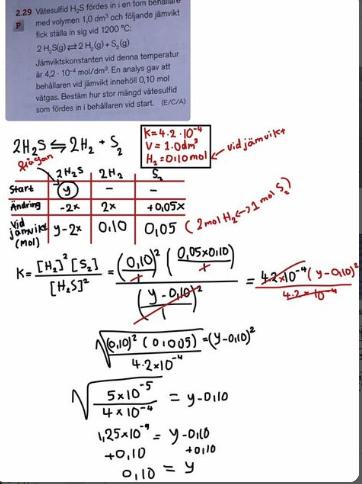 2.29 Vätesulfid H₂S fördes in i en tom behållare
P med volymen 1,0 dm³ och följande jämvikt
fick ställa in sig vid 1200 °C:
2 H₂S(g) ⇄ 2 H₂(g) + S₂(g)
Jämviktskonstanten vid denna temperatur
är 4,2 · 10⁻⁴ mol/dm³. En analys gav att
behållaren vid jämvikt innehöll 0,10 mol
vätgas. Bestäm hur stor mängd vätesulfid
som fördes in i behållaren vid start. (E/C/A)
2H₂S ⇆ 2H₂ + S₂
K=4.2·10⁻⁴
V = 1.0dm³
H₂ = 0.10mol
vid jämvikt
frågan
2H₂S 2H₂ S₂
Start y – –
Ändring -2x 2x +0,05x
Vid jämvikt (mol) y-2x 0,10 0,05 (2mol H₂ → 1 mol S₂)
K = [H₂]² [S₂] / [H₂S]² = (0,10 / 1)² (0,05×0,10 / 1) / ((y-0,10)² / 1) = 4.2×10⁻⁴ (y-0,10)² / 4.2×10⁻⁴
√((0,10)² (0,1005) / 4.2×10⁻⁴) = (y-0,10)²
√(5×10⁻⁵ / 4×10⁻⁴) = y-0,10
1,25×10⁻⁹ = y-0,10
+0,10 +0,10
0,10 = y